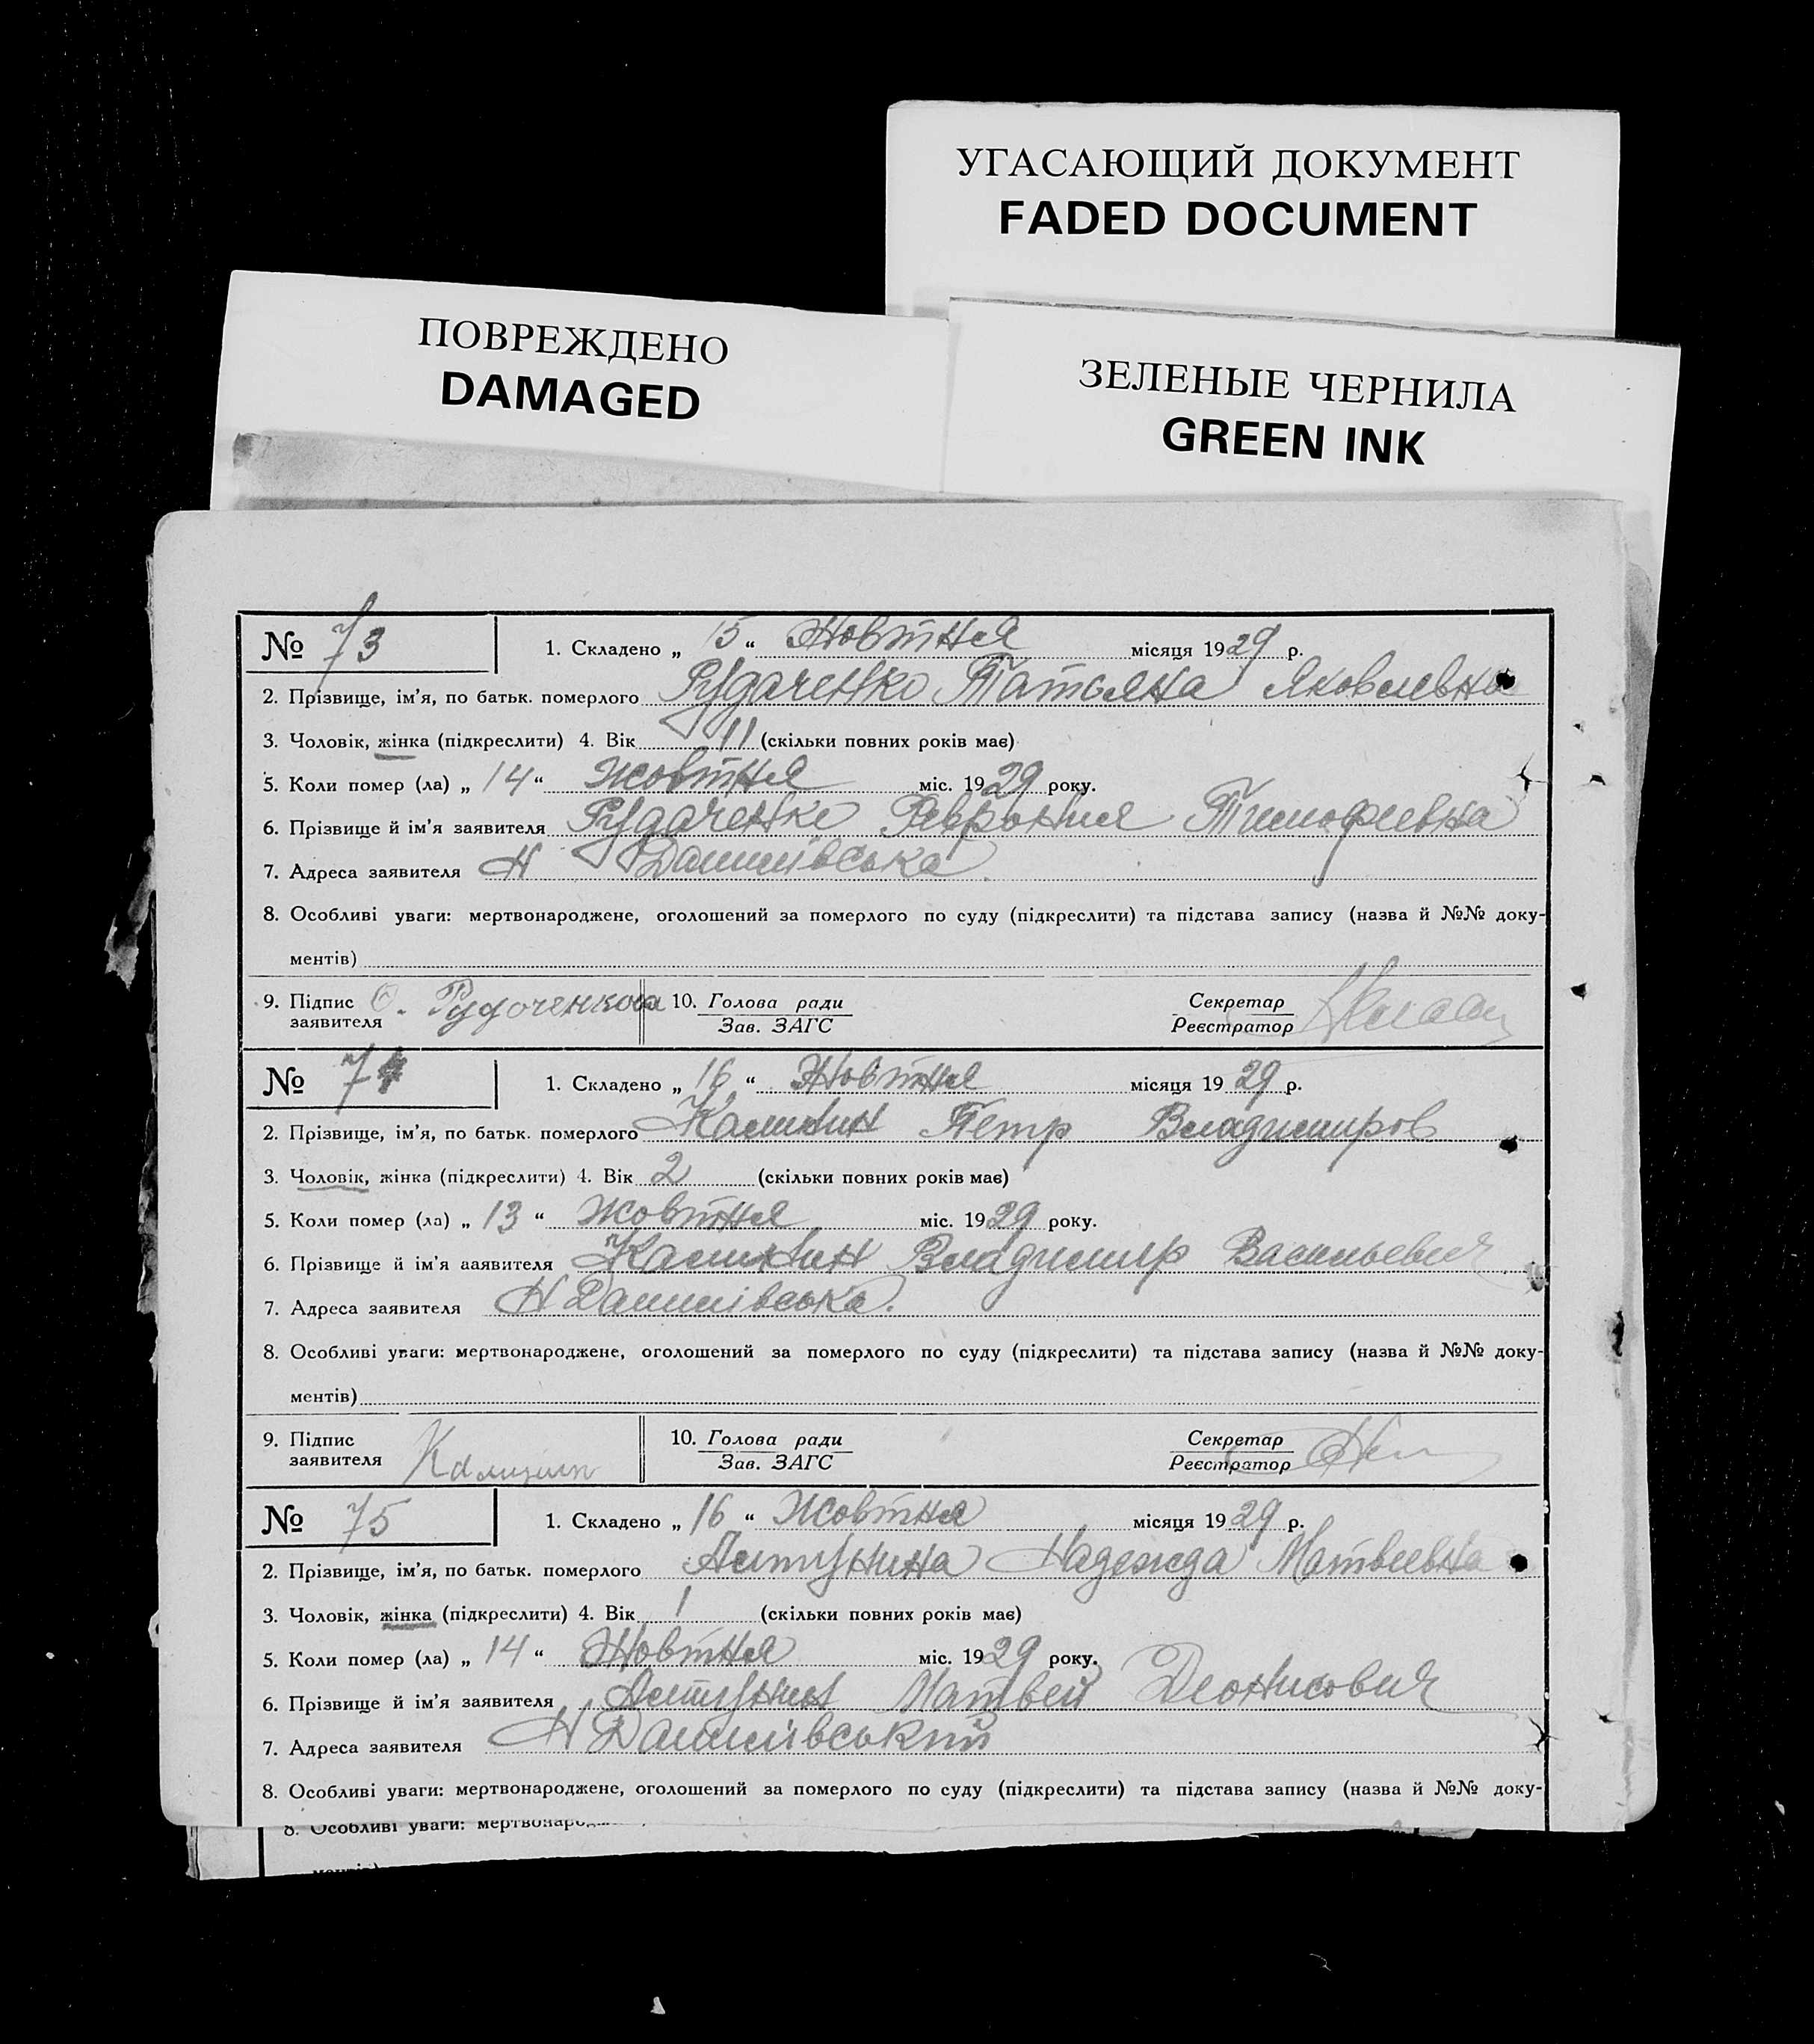 УГАСАЮЩИЙ ДОКУМЕНТ
FADED DOCUMENT
ПОВРЕЖДЕНО
DAMAGED
ЗЕЛЕНЫЕ ЧЕРНИЛА
GREEN INK
№ 73 1. Складено „ 15 “ Жовтня місяця 1929 р.
2. Прізвище, ім'я, по батьк. померлого Рудаченко Татьяна Яковлевна
3. Чоловік, жінка (підкреслити) 4. Вік 11 (скільки повних років має)
5. Коли помер (ла) „ 14 “ жовтня міс. 1929 року.
6. Прізвище й ім'я заявителя Рудаченко Феврония Тимофеевна
7. Адреса заявителя Н Данилівська
8. Особливі уваги: мертвонароджене, оголошений за померлого по суду (підкреслити) та підстава запису (назва й №№ доку-
ментів)
9. Підпис заявителя О. Рудоченкова 10. Голова ради Зав. ЗАГС Секретар Реєстратор
№ 74 1. Складено „ 16 “ Жовтня місяця 1929 р.
2. Прізвище, ім'я, по батьк. померлого Петр Владимиров
3. Чоловік, жінка (підкреслити) 4. Вік 2 (скільки повних років має)
5. Коли помер (ла) „ 13 “ жовтня міс. 1929 року.
6. Прізвище й ім'я ааявителя Владимир Васильевич
7. Адреса заявителя Н Данилівська.
8. Особливі уваги: мертвонароджене, оголошений за померлого по суду (підкреслити) та підстава запису (назва й №№ доку-
ментів)
9. Підпис заявителя 10. Голова ради Зав. ЗАГС Секретар Реєстратор
№ 75 1. Складено „ 16 “ Жовтня місяця 1929 р.
2. Прізвище, ім'я, по батьк. померлого Надежда Матвеевна
3. Чоловік, жінка (підкреслити) 4. Вік 1 (скільки повних років має)
5. Коли помер (ла) „ 14 “ Жовтня міс. 1929 року.
6. Прізвище й ім'я заявителя Матвей Деонисович
7. Адреса заявителя Н Данилівський
8. Особливі уваги: мертвонароджене, оголошений за померлого по суду (підкреслити) та підстава запису (назва й №№ доку-
8. Особливі уваги: